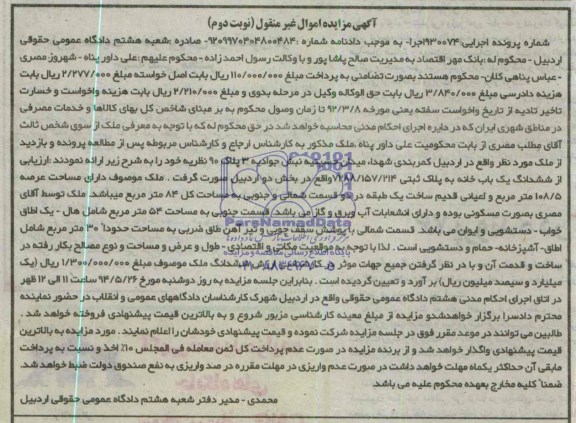 آگهی مزایده اموال غیر منقول (نوبت دوم)
شماره پرونده اجرایی:۹۳۰۰۷۴اجرا- به موجب دادنامه شماره :۹۲۰۹۹۷۰۴۰۴۸۰۰۴۸۴- صادره :شعبه هشتم دادگاه عمومی حقوقی
اردبیل - محکوم له :بانک مهر اقتصاد به مدیریت صالح پاشا پور و با وکالت رسول احمد زاده - محکوم علیهم :علی داور پناه - شهروز مصری
- عباس پناهی کلان- محکوم هستند بصورت تضامنی به پرداخت مبلغ ۱۱۰/۰۰۰/۰۰۰ ریال بابت اصل خواسته مبلغ ۲/۲۷۷/۰۰۰ ریال بابت
هزینه دادرسی مبلغ ۳/۸۴۰/۰۰۰ ریال بابت حق الوکاله وکیل در مرحله بدوی و مبلغ ۲/۲۱۰/۰۰۰ ریال بابت هزینه واخواست و خسارت
تاخیر تادیه از تاریخ واخواست سفته یعنی مورخه ۹۲/۳/۸ تا زمان وصول محکوم به بر مبنای شاخص کل بهای کالاها و خدمات مصرفی
در مناطق شهری ایران که در دایره اجرای احکام مدنی محاسبه خواهد شد در حق محکوم له که با توجه به معرفی ملک از سوی شخص ثالث
آقای مطلب مصری از بابت محکومیت علی داور پناه .ملک مذکور به کارشناس ارجاع و کارشناس مربوطه پس از مطالعه پرونده و بازدید
از ملک مورد نظر واقع در اردبیل کمربندی شهدا، میدان نبش جوادیه ۳ پلاک ۹۰ نظریه خود را به شرح زیر ارائه نمودند :ارزیابی
از ششدانگ یک باب خانه به پلاک ثبتی ۷۲۸۸/۱۵۷/۲۱۴ واقع در بخش دو اردبیل صورت گرفت . ملک موصوف دارای مساحت عرصه
۱۰۸/۵ متر مربع و اعیانی قدیم ساخت یک طبقه در دو قسمت شمالی و جنوبی به مساحت کل ۸۴ متر مربع میباشد. ملک توسط آقای
مصری بصورت مسکونی بوده و دارای انشعابات آب وبرق و گاز می باشد. قسمت جنوبی به مساحت ۵۴ متر مربع شامل هال - یک اطاق
خواب - دستشویی و ایوان می باشد. قسمت شمالی با پوشش سقف چوبی و تیر آهن طاق ضربی به مساحت حدودا ۳۰ متر مربع شامل
اطاق- آشپزخانه- حمام و دستشویی است . لذا با توجه به موقعیت مکانی و اقتصادی - طول و عرض و مساحت و نوع مصالح بکار رفته در
ساخت و قدمت آن و با در نظر گرفتن جمیع جهات موثر در ششدانگ ملک موصوف مبلغ ۱/۳۰۰/۰۰۰/۰۰۰ ریال (یک
میلیارد و سیصد میلیون ریال) بر آورد و تعیین گردیده است . بنابراین جلسه مزایده به روز دوشنبه مورخ ۹۴/۵/۲۶ ساعت ۱۱ الی ۱۲ ظهر
در اتاق اجرای احکام مدنی هشتم دادگاه عمومی حقوقی واقع در اردبیل شهرک کارشناسان دادگاههای عمومی و انقلاب در حضور نماینده
محترم دادسرا برگزار خواهدشدو مزایده از مبلغ معینه کارشناسی مزبور شروع و به بالاترین قیمت پیشنهادی فروخته خواهد شد .
طالبین می توانند در موعد مقرر فوق در جلسه مزایده شرکت نموده و قیمت پیشنهادی خودشان را اعلام نمایند . مورد مزایده به بالاترین
قیمت پیشنهادی واگذار خواهد شد و از برنده مزایده در صورت عدم پرداخت کل ثمن معامله فی المجلس ۱۰٪ اخذ و نسبت به پرداخت
مابقی آن حداکثر یکماه مهلت خواهد داشت در صورت عدم واریزی در مهلت مقرره در صد واریزی به نفع صندوق دولت ضبط خواهد شد.
ضمنا کلیه مخارج بعهده محکوم علیه می باشد.
محمدی - مدیر دفتر شعبه هشتم دادگاه عمومی حقوقی اردبیل
ParsNamadData